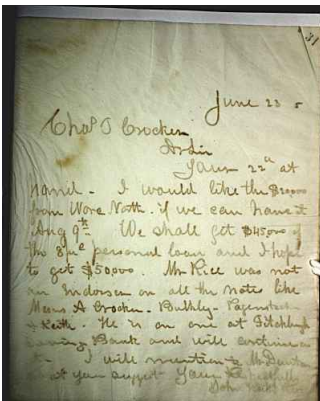 31
June 23 5
Chas T Crocker
Dr Sir
Yours 22d at
hand - I would like the $20000
from Wore Nath. if we can have it
Aug 9th. We shall get $45000 of
the personal loan and I hope
to get $50000. Mr Rice was not
an Endorser on all the notes like
Messrs A Crocker. Bulkley. Pagenstecher
& Keith. He is on one at Fitchburg
Savings Bank and will continue on
it - I will mention to Mr
as you suggest Yours